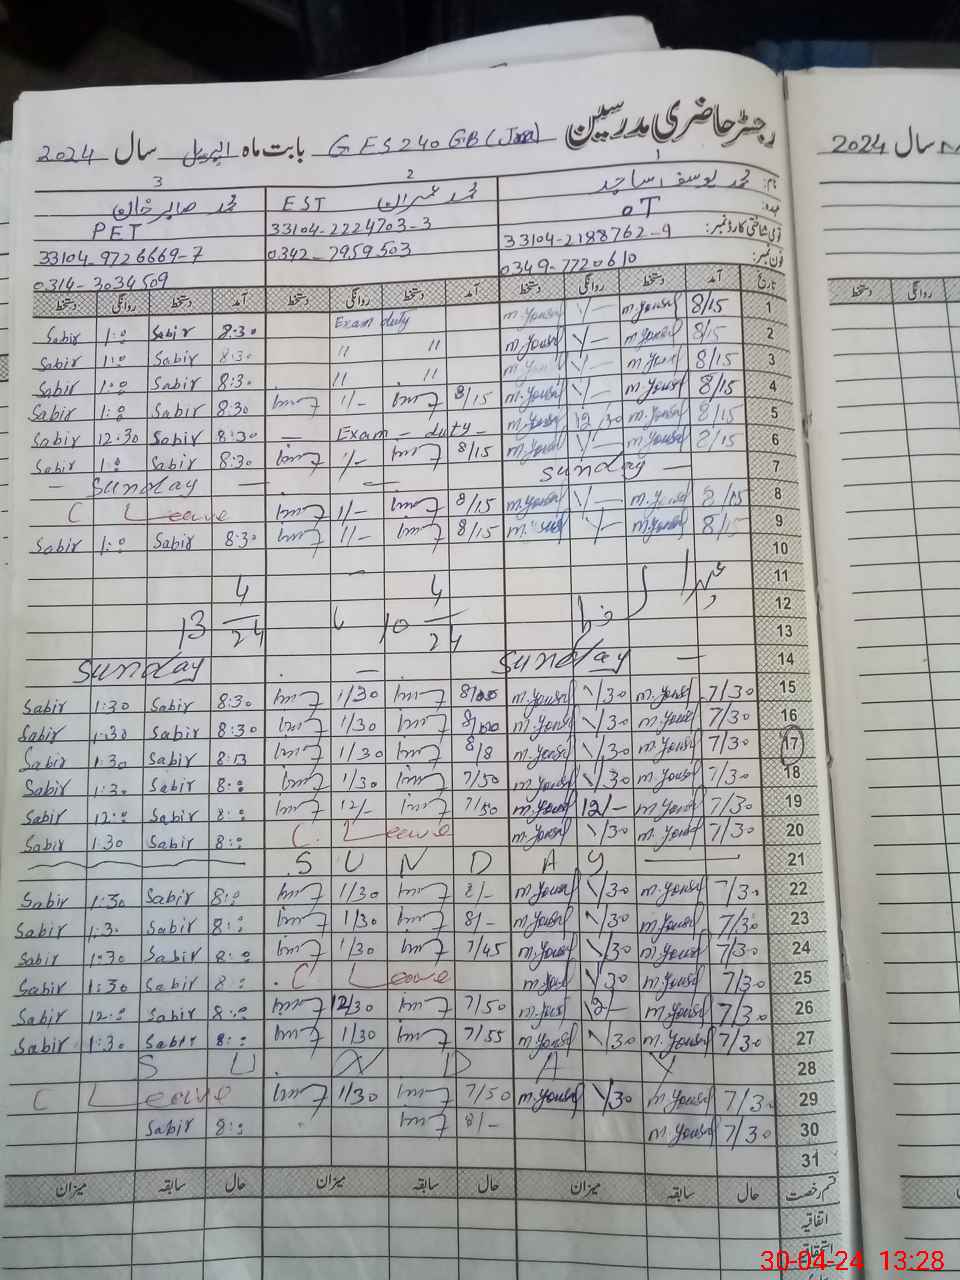 رجسٹر حاضری مدرسین GES 240 GB (Jna) بابت ماہ اپریل سال 2024
سال 2024
1 2 3
نام: محمد یوسف ساجد محمد عمران EST محمد صابر خان
عہدہ: OT PET
قومی شناختی کارڈ نمبر: 33104-2188762-9 33104-2224703-3 33104-9726669-7
فون نمبر: 0349-7720610 0342-7959503 0314-3034509
تاریخ آمد دستخط روانگی دستخط آمد دستخط روانگی دستخط آمد دستخط روانگی دستخط
روانگی دستخط
1 8/15 m.Yousaf 1/— m.Yousaf Exam duty 8:30 Sabir 1:00 Sabir
2 8/15 m.Yousaf 1/— m.Yousaf " " 8:30 Sabir 1:00 Sabir
3 8/15 m.Yousaf 1/— m.Yousaf " " 8:30 Sabir 1:00 Sabir
4 8/15 m.Yousaf 1/— m.Yousaf 8/15 1/- 8:30 Sabir 1:00 Sabir
5 8/15 m.Yousaf 12/30 m.Yousaf — Exam - duty - 8:30 Sabir 12:30 Sabir
6 8/15 m.Yousaf 1/— m.Yousaf 8/15 1/- 8:30 Sabir 1:00 Sabir
7 Sunday — — — Sunday —
8 8/15 m.Yousaf 1/— m.Yousaf 8/15 1/- C Leave
9 8/15 m.Yousaf 1/— 8/15 1/- 8:30 Sabir 1:00 Sabir
10
11
12 10 4/24 13 4/24
13
14 Sunday — — Sunday
15 7/30 m.Yousaf 1/30 m.Yousaf 1/30 8:30 Sabir 1:30 Sabir
16 7/30 m.Yousaf 1/30 m.Yousaf 1/30 8:30 Sabir 1:30 Sabir
17 7/30 m.Yousaf 1/30 m.Yousaf 8/8 1/30 8:13 Sabir 1:30 Sabir
18 7/30 m.Yousaf 1/30 m.Yousaf 7/50 1/30 8:00 Sabir 1:30 Sabir
19 7/30 m.Yousaf 12/- m.Yousaf 7/50 12/- 8:00 Sabir 12:00 Sabir
20 7/30 m.Yousaf 1/30 m.Yousaf C. Leave 8:00 Sabir 1:30 Sabir
21 S U N D A Y
22 7/30 m.Yousaf 1/30 m.Yousaf 8/- 1/30 8:00 Sabir 1:30 Sabir
23 7/30 m.Yousaf 1/30 m.Yousaf 8/- 1/30 8:00 Sabir 1:30 Sabir
24 7/30 m.Yousaf 1/30 m.Yousaf 7/45 1/30 8:00 Sabir 1:30 Sabir
25 7/30 m.Yousaf 1/30 m.Yousaf C Leave 8:00 Sabir 1:30 Sabir
26 7/30 m.Yousaf 12/- m.Yousaf 7/50 12/30 8:00 Sabir 12:00 Sabir
27 7/30 m.Yousaf 1/30 m.Yousaf 7/55 1/30 8:00 Sabir 1:30 Sabir
28 S U N D A Y
29 7/30 m.Yousaf 1/30 m.Yousaf 7/50 1/30 C Leave
30 7/30 m.Yousaf 8/- 8:00 Sabir
31
قسم رخصت حال سابقہ میزان حال سابقہ میزان حال سابقہ میزان
اتفاقیہ
استحقاقی
30-04-24 13:28